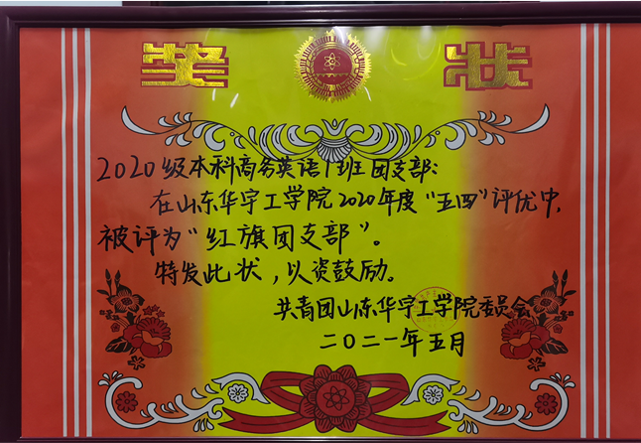 奖 状
2020级本科商务英语1班团支部:
在山东华宇工学院2020年度“五四”评优中,
被评为“红旗团支部”。
特发此状,以资鼓励。
共青团山东华宇工学院委员会
二〇二一年五月